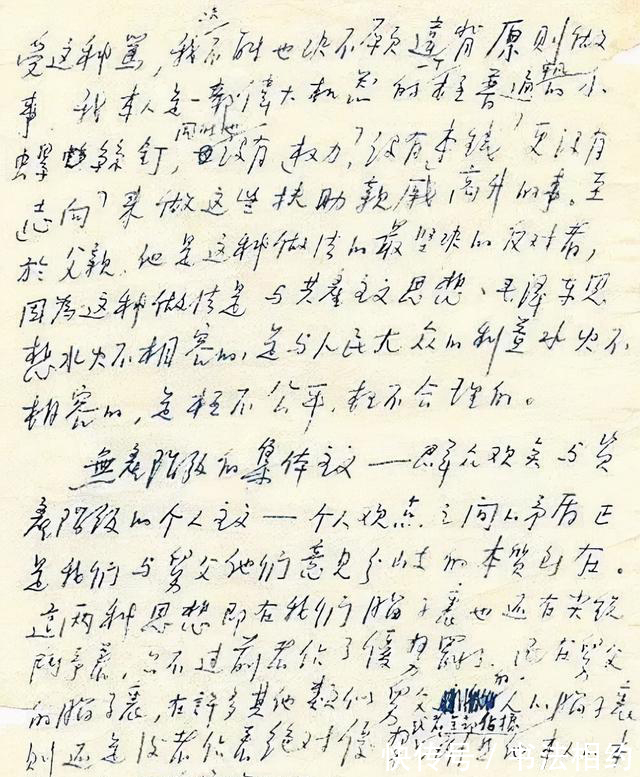 受这种骂，我不能也决不愿违背原则做
事。我本人是一部伟大机器的极普通的小
螺丝钉，同时也没有"权力"，没有"本钱"，更没有
"志向"来做这些扶助亲戚高升的事。至
於父亲，他是这种做法的最坚决的反对者，
因为这种做法是与共产主义思想、毛泽东思
想水火不相容的，是与人民大众的利益水火不
相容的，是极不公平、极不合理的。
無产阶级的集体主义——群众观点与资
产阶级的个人主义——个人观点之间的矛盾正
是我们与舅父他们意见分歧的本质所在。
這两种思想即在我们脑子裏也还有尖锐
鬥争着，只不过前者佔了優势罢了。而在舅父
的脑子裏，在許多其他类似舅父的人的脑子裏
则还是後者佔着绝对優势
或者全部佔據
快传号 / 书法相约